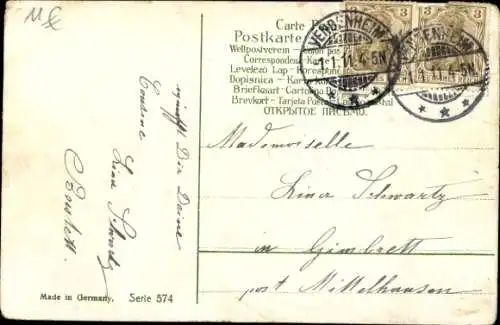 Carte
Postkarte
Weltpostverein
Correspondenz
Levelező Lap
Dopisnica
Briefkaart - Cartolina
Brevkort - Tarjeta Postal
ОТКРЫТОЕ ПИСЬМО.
3
3
1.1.11. 4-5N
wünscht Dir Deine
Cousine Lina Schwartz
Mademoiselle
Lina Schwartz
in Gimbrett
post Mittelhausen
Made in Germany. Serie 574